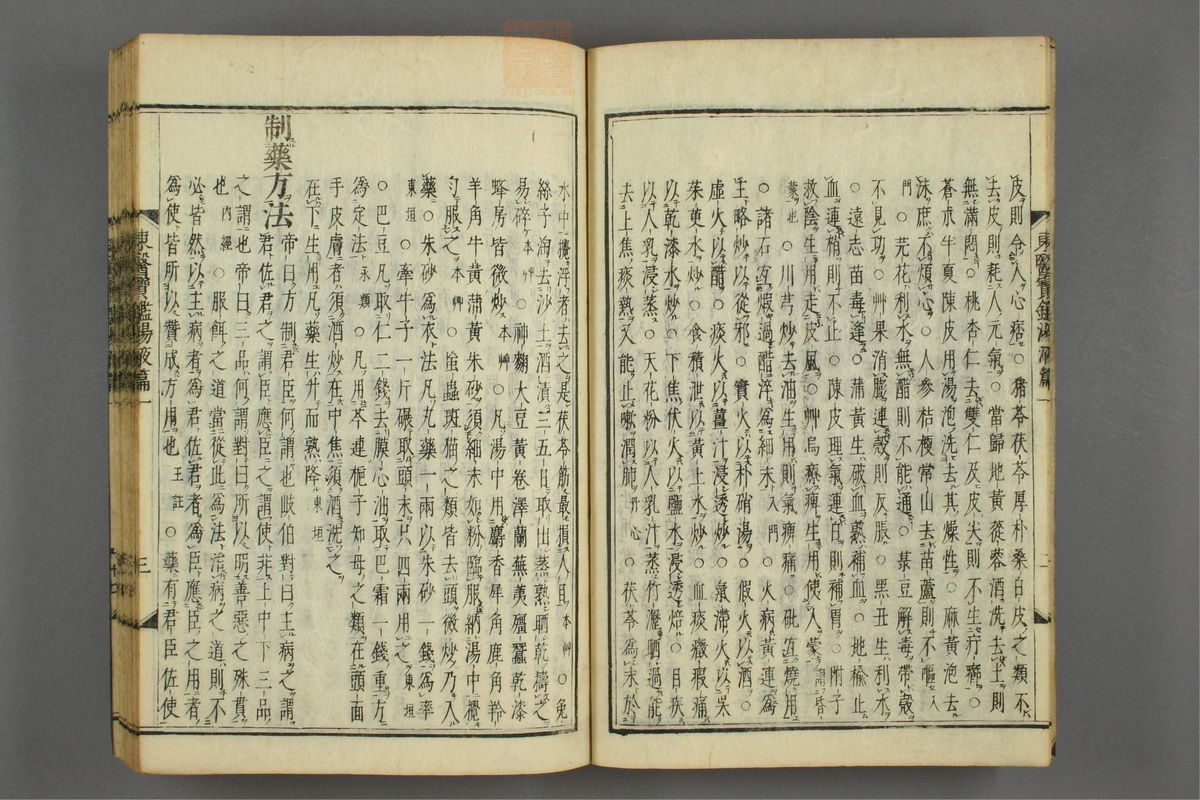 皮則令人心痞○豬苓茯苓厚朴桑白皮之類不
去皮則耗人元氣○當歸地黃蓯蓉酒洗去土則
無滿悶○桃杏仁去雙仁及皮尖則不生疔癤○
蒼朮半夏陳皮用湯泡洗去其燥性○麻黃泡去
沫庶不煩心○人參桔梗常山去苗蘆則不嘔入
門○芫花利水無醋則不能通○菉豆解毒帶殼
不見功○艸果消膨連殼則反脹○黑丑生利水
○遠志苗毒逢○蒲黃生破血熟補血○地楡止
血連稍則不止○陳皮理氣連白則補胃○附子
救陰生用走皮風○艸烏療痺生用使人蒙謂昏
蒙也○川芎炒去油生用則氣痺痛○砒宜燒用
○諸石宜煆過醋淬爲細末入門○火病黃連爲
主略炒以從邪○實火以朴硝湯○假火以酒○
虛火以醋○痰火以薑汁浸透炒○氣滯火以吳
茱萸水炒○食積泄以黃土水炒○血痰癥瘕痛
以乾漆水炒○下焦伏火以鹽水浸透焙○目疾
以人乳浸蒸○天花粉以人乳汁蒸竹瀝晒過能
去上焦痰熱又能止嗽潤肺丹心○茯苓爲末於
水中攪浮者去之是茯苓筋最損人目本艸○兔
絲子淘去沙土酒漬三五日取出蒸熟晒乾擣之
易碎本艸○神麴大豆黃卷澤蘭蕪荑殭蠶乾漆
蜂房皆微炒本艸○凡湯中用麝香犀角鹿角羚
羊角牛黃蒲黃朱砂須細末如粉臨服納湯中攪
勻服之本艸○䖟蟲斑猫之類皆去頭微炒乃入
藥○朱砂爲衣法凡丸藥一兩以朱砂一錢爲率
東垣○牽牛子一斤碾取頭末只四兩用之東垣
○巴豆凡取仁二錢去膜心油取巴霜一錢重方
爲定法永類○凡用芩連梔子知母之類在頭面
手皮膚者須酒炒在中焦須酒洗之
在下生用凡藥生升而熟降東垣
制藥方法
帝曰方制君臣何謂也歧伯對曰主病之謂
君佐君之謂臣應臣之謂使非上中下三品
之謂也帝曰三品何謂對曰所以明善惡之殊貫
也內經○服餌之道當從此爲法治病之道則不
必皆然以主病者爲君佐君者爲臣應臣之用者
爲使皆所以贊成方用也王註○藥有君臣佐使
東醫寶鑑湯液篇一
二
東醫寶鑑湯液篇一
三